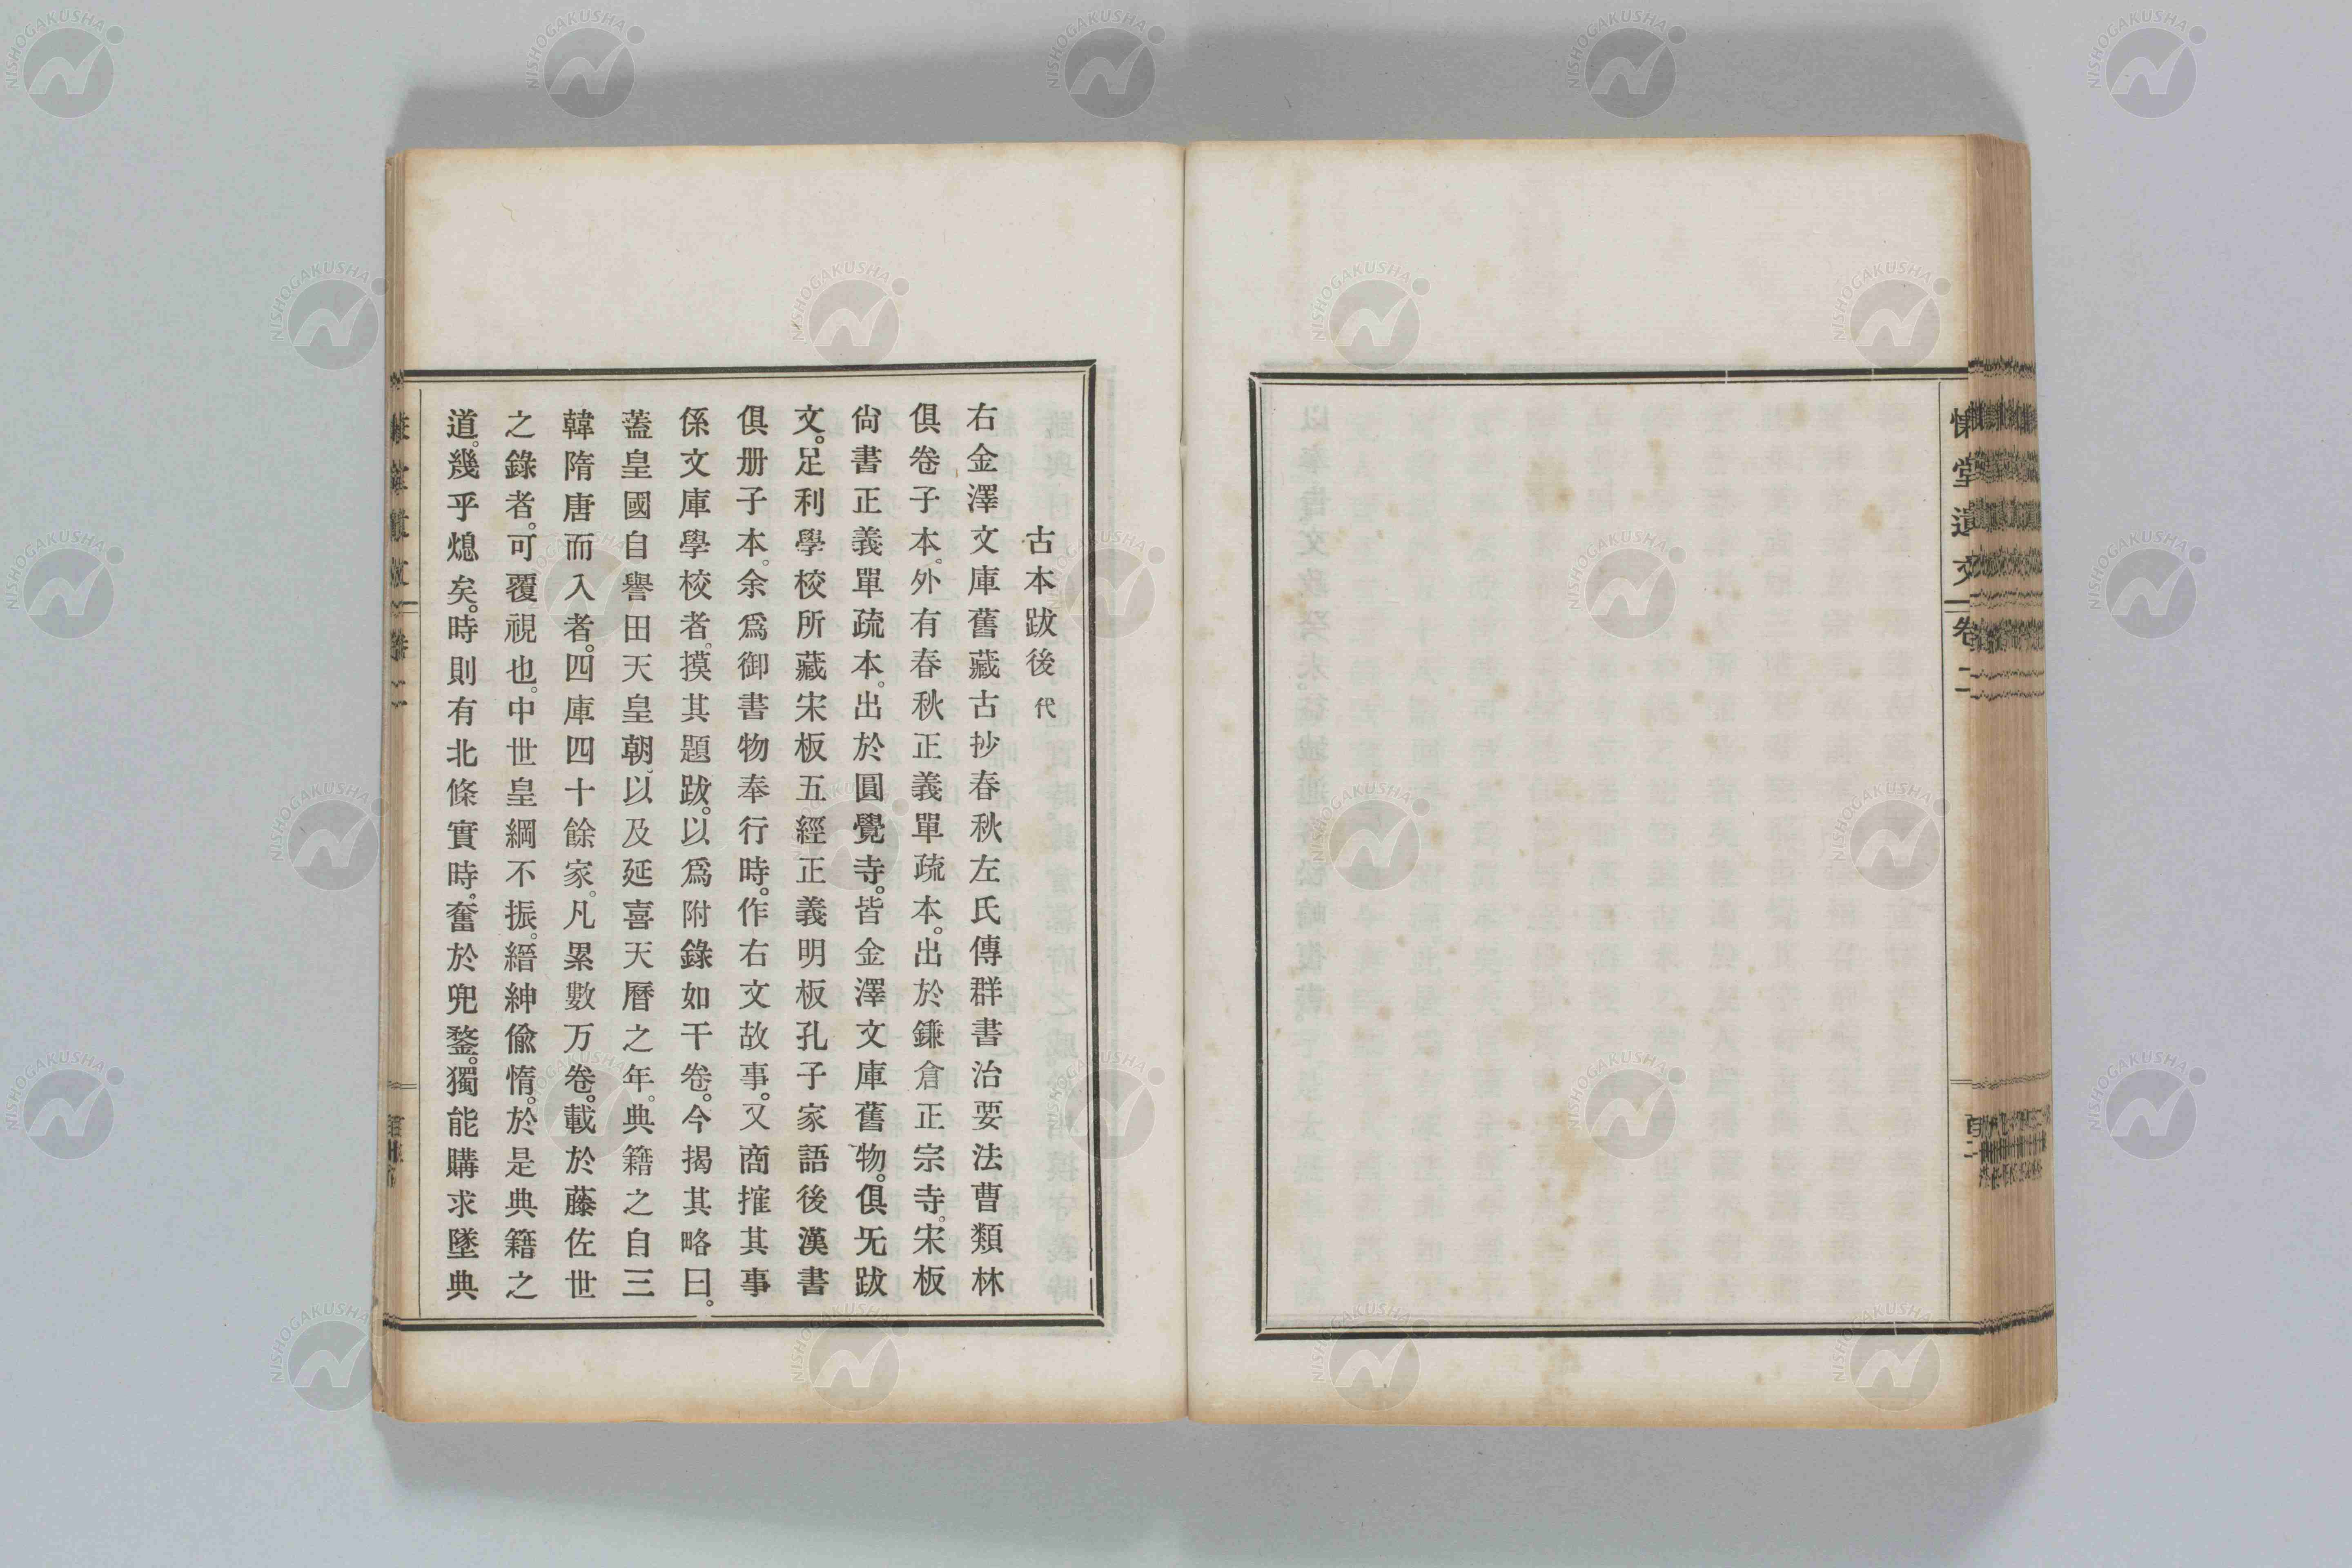 慊堂遺文 卷二
古本跋後 代
右金澤文庫舊藏古抄春秋左氏傳群書治要法曹類林
俱卷子本。外有春秋正義單疏本。出於鎌倉正宗寺。宋板
尙書正義單疏本。出於圓覺寺。皆金澤文庫舊物。俱旡跋
文。足利學校所藏宋板五經正義明板孔子家語後漢書
俱册子本。余爲御書物奉行時。作右文故事。又商搉其事
係文庫學校者。摸其題跋。以爲附錄如干卷。今揭其略曰。
蓋皇國自譽田天皇朝。以及延喜天曆之年。典籍之自三
韓隋唐而入者。四庫四十餘家。凡累數万卷。載於藤佐世
之錄者。可覆視也。中世皇綱不振。縉紳偸惰。於是典籍之
道。幾乎熄矣。時則有北條實時。奮於兜鍪。獨能購求墜典
NISHOGAKUSHA